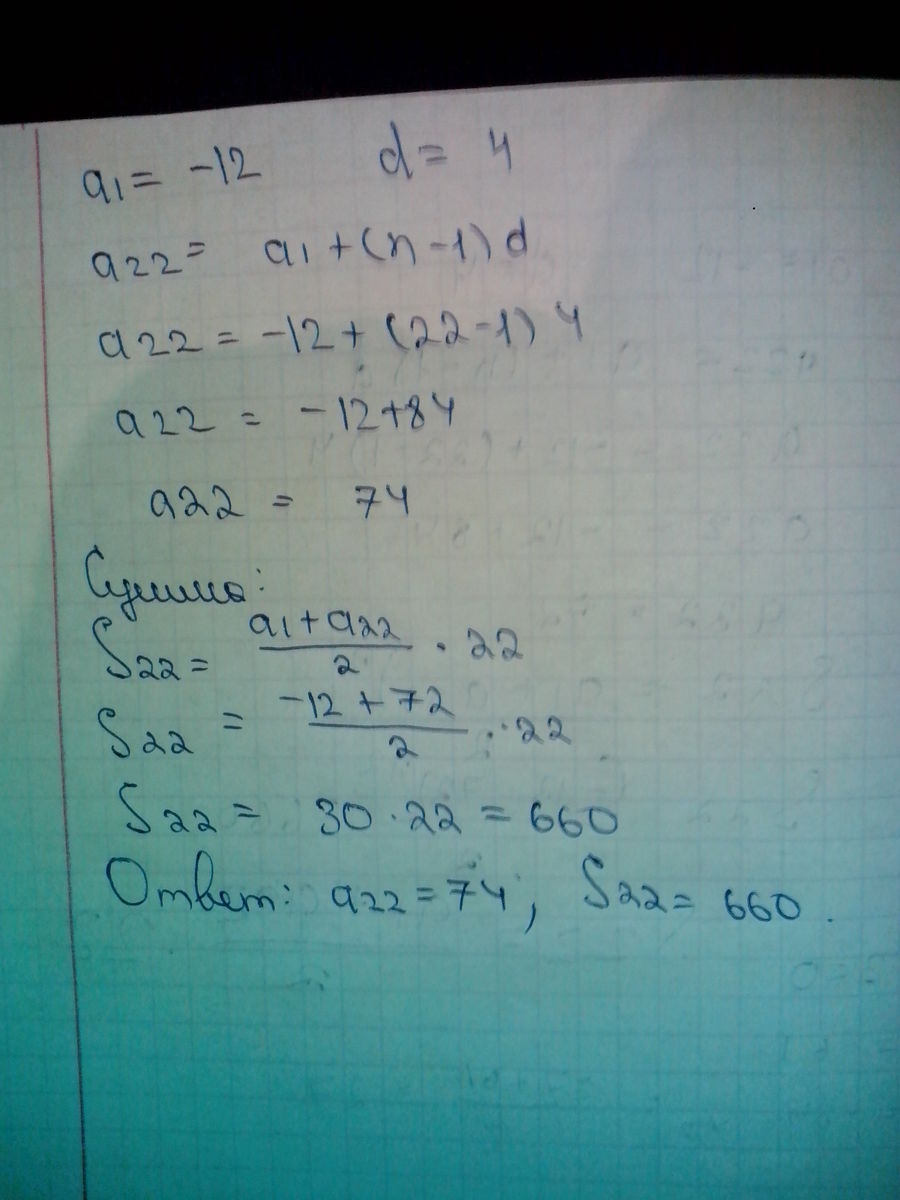 a1 = -12 d = 4
a22 = a1 + (n - 1) d
a22 = -12 + (22 - 1) 4
a22 = -12+84
a22 = 74
Сумма:
S22 = a1 + a22 / 2 · 22
S22 = -12 + 72 / 2 · 22
S22 = 30 · 22 = 660
Ответ: a22 = 74, S22 = 660.